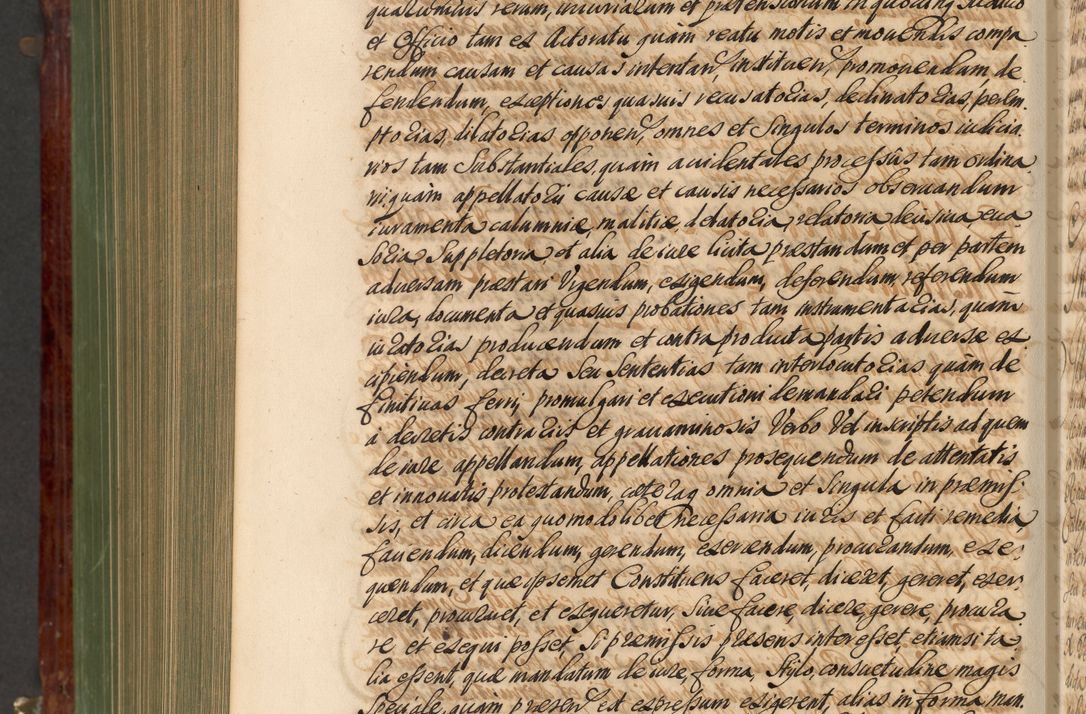 qualiumuis rerum, iniuriarum et praetensionum in quocunq Iudicio
et Officio tam ex Actoratu quàm reatu motis et mouendis compa
rendum causam et causas intentan, instituen, promouendum de
fendendum, exceptiones quasuis recusatorias, declinatorias, perem
ptorias, dilatorias opponen, omnes et Singulos terminos iudicia
rios tam Substantiales, quàm accidentales processûs tam ordina
rii quàm appellatorii causæ et causis necessarios obseruandum
iuramenta calumniæ, malitiæ, delatoria, relatoria decisiua, eua
soria Suppletoria et alia de iure licita præstandum et per partem
aduersam præstari Vrgendum, exigendum, deferendum, referendum
iura, documenta et quasuis probationes tam instrumentarias, quàm
iuratorias producendum et contra producta partis aduersæ ex
cipiendum, decreta Seu Sententias tam interlocutorias quàm de
finitiuas ferri, promulgari et executioni demandari petendum
à decretis contrariis et grauaminosis Verbo Vel in scriptis ad quem
de iure appellandum, appellationes prosequendum de attentatis
et innouatis protestandum, cæteraq omnia et Singula in præmis
sis, et circa ea quomodolibet necessaria iuris et facti remedia
faciendum, dicendum, gerendum, exercendum, procurandum, exe
quendum, et quæ ipsemet Constituens faceret, diceret, gereret, exer
ceret, procuraret, et exequeretur, Siue facere, dicere, gerere, procura
re et exequi posset, Si præmissis præsens interesset, etiamsi ta
lia essent, quæ mandatum de iure, forma, Stylo, consuetudine magis
Speciale, quàm præsen et expressum exigerent, alias in forma man